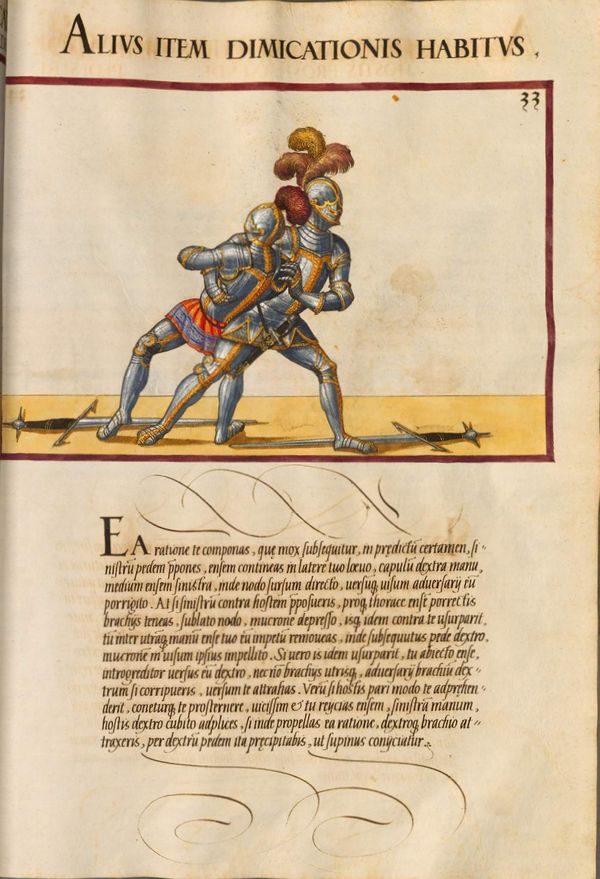 ALIVS ITEM DIMICATIONIS HABITVS.
33
EA ratione te componas, quę mox subsequitur, in prędictũ certamen, si-
nistrũ pedem p̱pones, ensem contineas in latere tuo lævo, capulũ dextra manu,
medium ensem sinistra, inde nodo sursum directo, versuq̢ uisum adversarij eũ
porrigito. At si sinistrũ contra hostem p̱posueris, proq̢ thorace ensẽ porrectis
brachijs teneas, sublato nodo, mucrone depresso, isq̢ idem contra te usurparit,
tũ inter utrãq̢ manũ ense tuo eũ impetũ removeas, inde subsequutus pede dextro,
mucronẽ in uisum ipsius impellito. Si uero is idem usurparit, tu abiecto ense,
introgreditor versus eũ dextro, nec nõ brachijs utrisq̢, adversarij brachiũ dex-
trum si corripueris, versum te attrahas. Verũ si hostis pari modo te adpręhen-
derit, coneturq̢ te prosternere, uicissim & tu reijcias ensem, sinistrã manum,
hostis dextro cubito adplices, si inde propellas ea ratione, dextroq̢ brachio at-
traxeris, per dextrũ pedem ita pręcipitabis, ut supinus conijciatur.